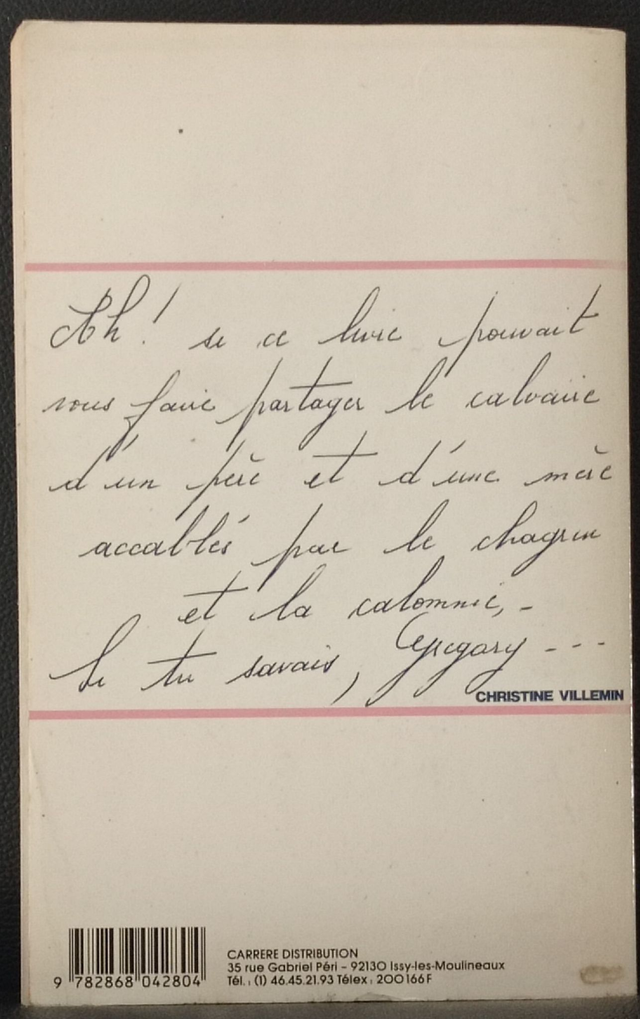 Ah! si ce livre pouvait
vous faire partager le calvaire
d'un père et d'une mère
accablés par le chagrin
et la calomnie, -
Si tu savais, Grégory ---
CHRISTINE VILLEMIN
9 782868 042804
CARRERE DISTRIBUTION
35 rue Gabriel Péri - 92130 Issy-les-Moulineaux
Tél. : (1) 46.45.21.93 Télex : 200166F